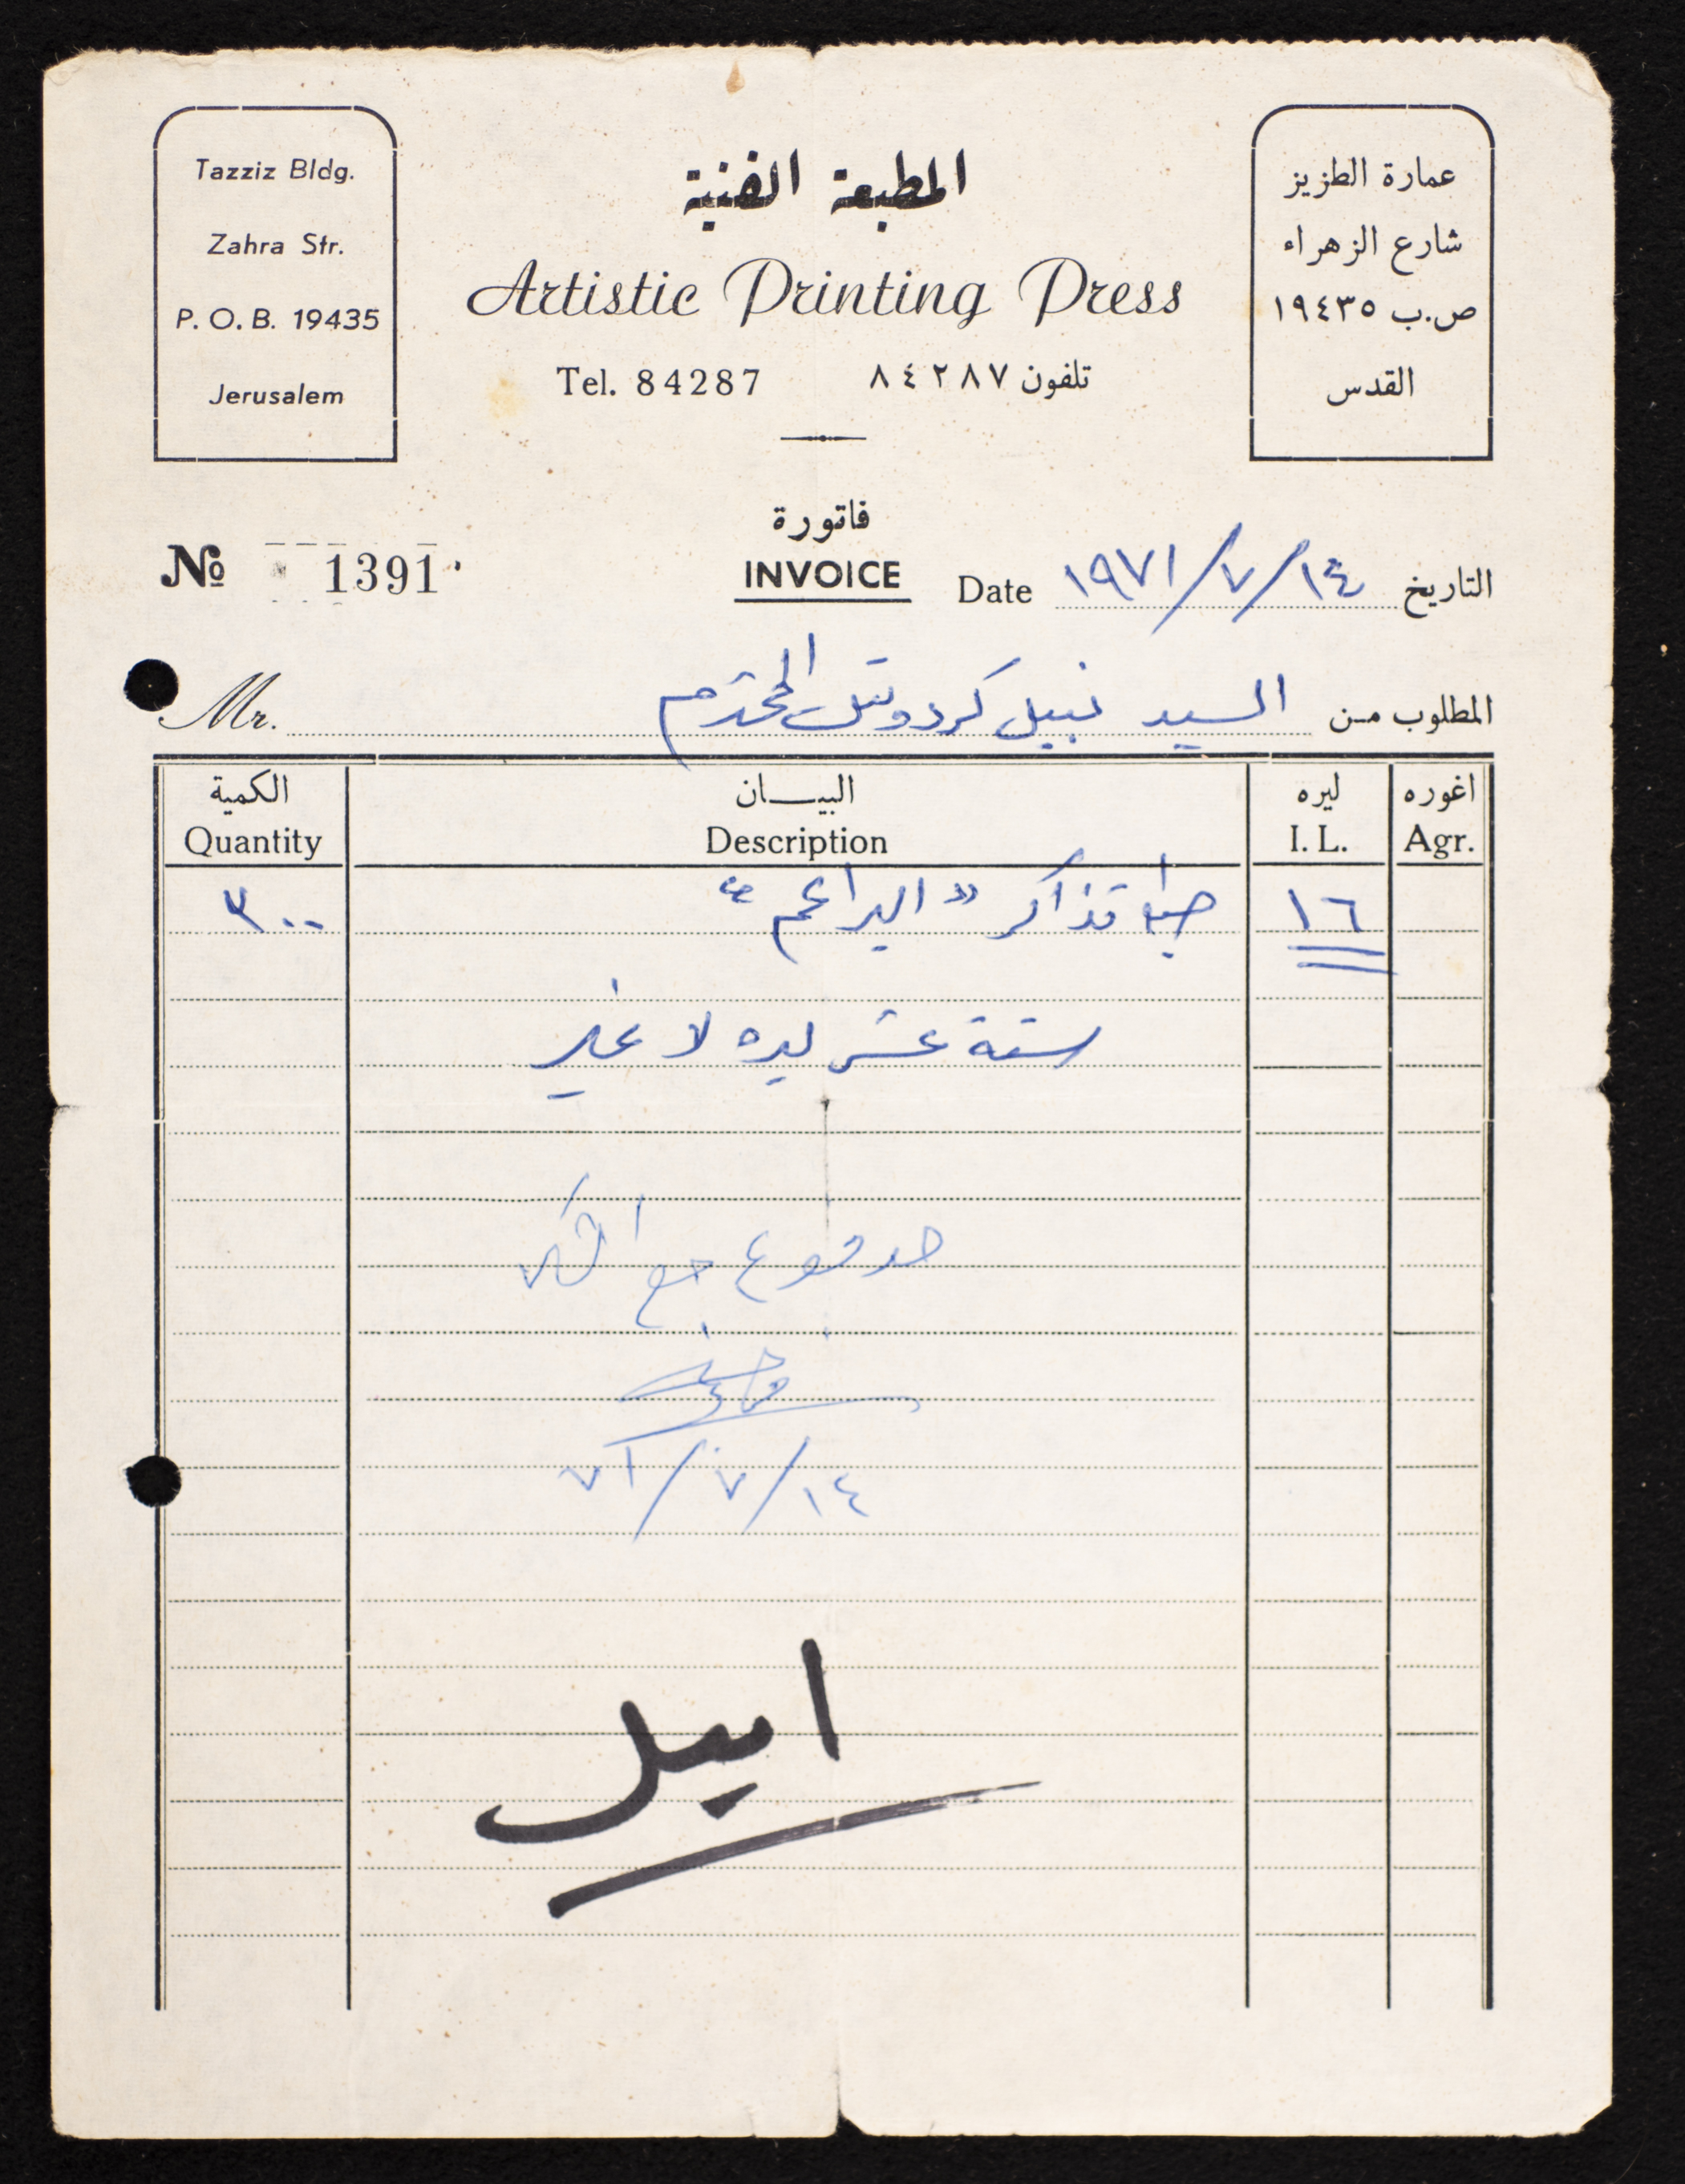 Tazziz Bldg.
Zahra Str.
P. O. B. 19435
Jerusalem
المطبعة الفنية
Artistic Printing Press
Tel. 84287 تلفون ٨٤٢٨٧
عمارة الطزيز
شارع الزهراء
ص.ب ١٩٤٣٥
القدس
فاتورة
№ 1391 INVOICE Date ١٩٧١/٧/١٤ التاريخ
Mr. المطلوب من السيد نبيل المحترم
الكمية البيـــان ليره اغوره
Quantity Description I. L. Agr.
٣٠٠ تذاكر "البراعم" ١٦
ستة عشر ليره لا غير
مدفوع مع الشكر
٧١/٧/١٤
اميل